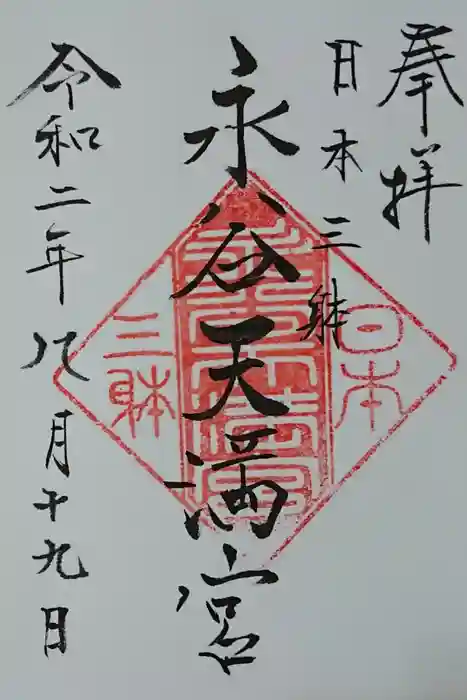 奉拝
日本三躰
永谷天満宮
令和二年八月十九日
日本
三躰